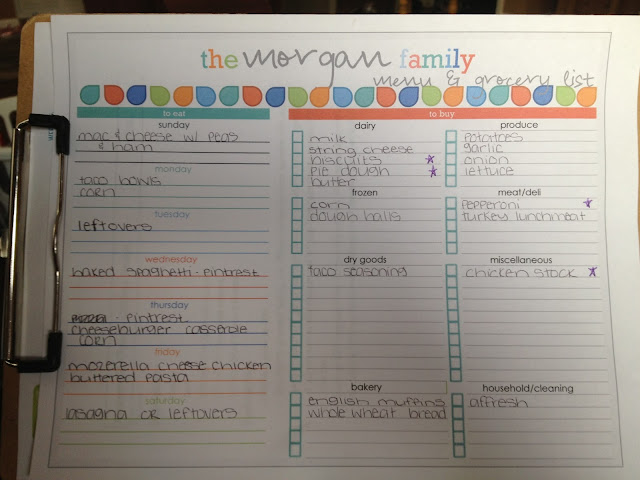 the morgan family
menu & grocery list
to eat
sunday
mac & cheese w/ peas
& ham
monday
taco bowls
corn
tuesday
leftovers
wednesday
baked spaghetti - pintrest
thursday
- pintrest
cheeseburger casserole
corn
friday
mozerella cheese chicken
buttered pasta
saturday
lasagna or leftovers
to buy
dairy
milk
string cheese
biscuits
pie dough
butter
frozen
corn
dough balls
dry goods
taco seasoning
bakery
english muffins
whole wheat bread
produce
potatoes
garlic
onion
lettuce
meat/deli
pepperoni
turkey lunchmeat
miscellaneous
chicken stock
household/cleaning
affresh